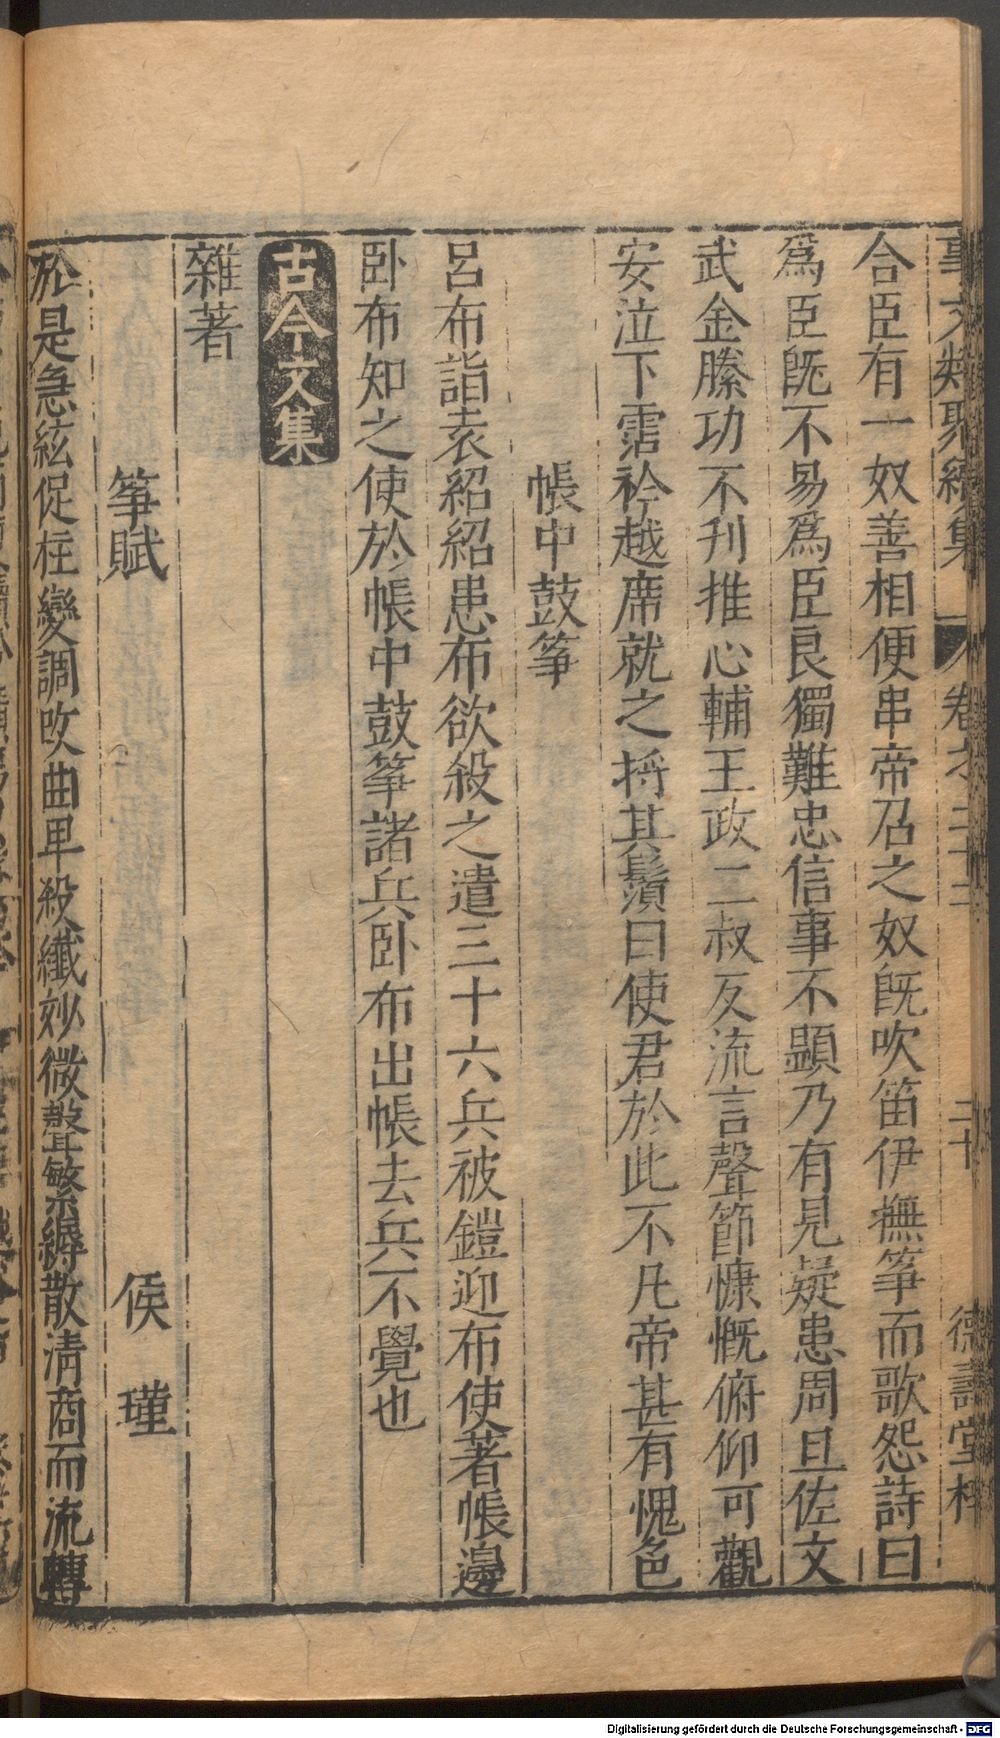 事文類聚續集 卷之二十三 二十 德壽堂梓
合臣有一奴善相便串帝召之奴旣吹笛伊撫筝而歌怨詩曰
爲臣旣不易爲臣良獨難忠信事不顯乃有見疑患周旦佐文
武金縢功不刋推心輔王政二叔反流言聲節慷慨俯仰可觀
安泣下霑衿越席就之捋其鬚曰使君於此不凡帝甚有愧色
帳中鼓筝
呂布詣袁紹紹患布欲殺之遣三十六兵被鎧迎布使著帳邊
卧布知之使於帳中鼓筝諸兵卧布出帳去兵不覺也
古今文集
雜著
筝賦 侯瑾
於是急絃促柱變調改曲卑殺纖妙微聲繁縟散淸商而流轉
Digitalisierung gefördert durch die Deutsche Forschungsgemeinschaft - DFG